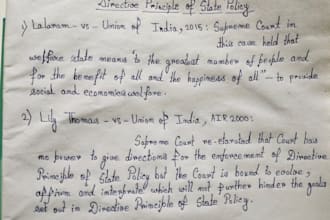 Directive Principle of State Policy
1) Lalaram - vs - Union of India, 2015: Supreme Court in
this case held that
welfare state means "to the greatest number of people and
for the benefit of all and the happiness of all" - to provide
social and economics welfare.
2) Lily Thomas - vs - Union of India, AIR 2000:
Supreme Court re-elarated that Court has
no power to give directions for the enforcement of Directive
Principle of State Policy but the Court is bound to evolve,
affirm and interprate which will not further hinder the goals
set out in Directive Principle of State Policy.